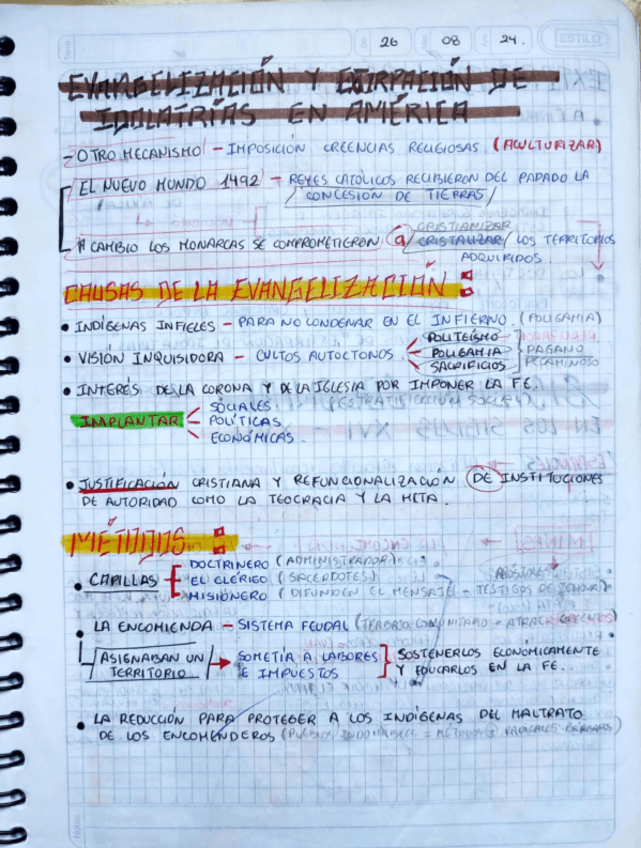 26 08 24.
ESTILO
EVANGELIZACIÓN Y EXIRPACIÓN DE
IDOLATRÍAS EN AMÉRICA
- OTRO MECANISMO - IMPOSICIÓN CREENCIAS RELIGIOSAS. (ACULTURIZAR)
EL NUEVO MUNDO 1492 - REYES CATÓLICOS RECIBIERON DEL PAPADO LA
/ CONCESIÓN DE TIERRAS /
CRISTIANIZAR
A CAMBIO LOS MONARCAS SE COMPROMETIERON a / CRISTALIZAR / LOS TERRITORIOS
ADQUIRIDOS.
CAUSAS DE LA EVANGELIZACIÓN:
• INDÍGENAS INFIELES - PARA NO CONDENAR EN EL INFIERNO (POLIGAMIA)
• VISIÓN INQUISIDORA - CULTOS AUTOCTONOS.
POLITEÍSMO
POLIGAMIA
SACRIFICIOS
PAGANO
PECAMINOSO
• INTERÉS DE LA CORONA Y DE LA IGLESIA POR IMPONER LA FE.
IMPLANTAR
SOCIALES
POLÍTICAS
ECONÓMICAS.
• JUSTIFICACIÓN CRISTIANA Y REFUNCIONALIZACIÓN DE INSTITUCIONES
DE AUTORIDAD COMO LA TEOCRACIA Y LA MITA.
MÉTODOS:
• CAPILLAS
DOCTRINERO (ADMINISTRADOR)
EL CLÉRIGO (SACERDOTES)
MISIÓNERO (DIFUNDEN EL MENSAJE - TESTIGOS DE JEHOVA)
APÓSTOLES
• LA ENCOMIENDA - SISTEMA FEUDAL (TRABAJO COMUNITARIO - ATRACR
ASIGNABAN UN
TERRITORIO
SOMETÍA A LABORES
E IMPUESTOS
SOSTENERLOS ECONÓMICAMENTE
Y EDUCARLOS EN LA FE.
• LA REDUCCIÓN PARA PROTEGER A LOS INDÍGENAS DEL MALTRATO
DE LOS ENCOMENDEROS (PUEBLOS
Notas